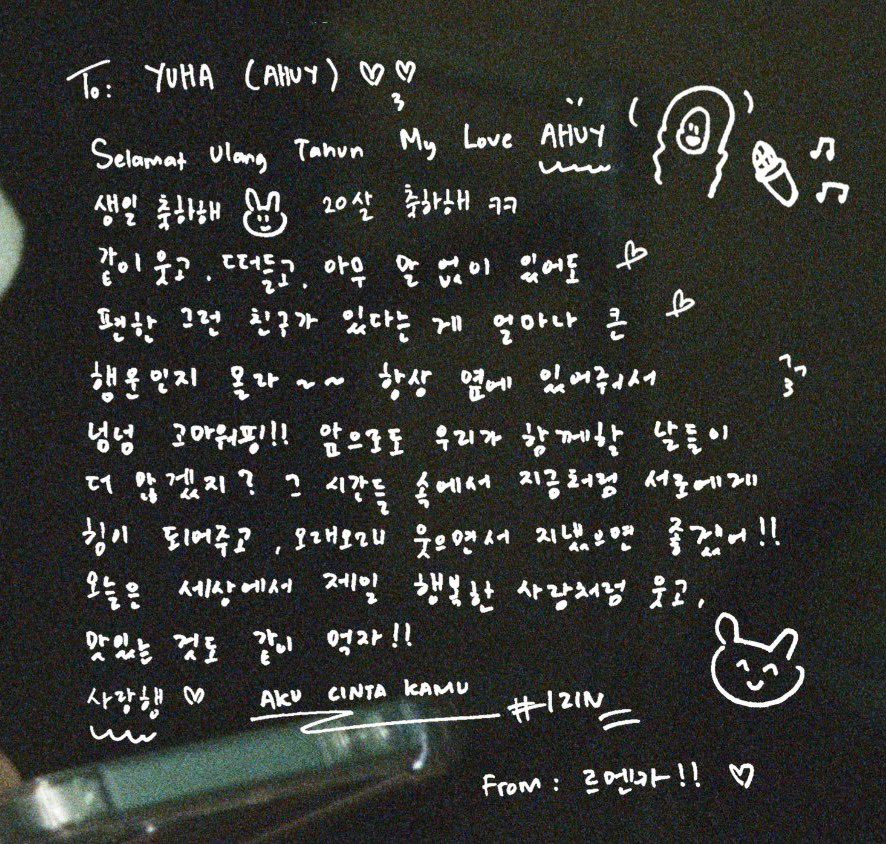 To: YUHA (AHUY) ♡♡
Selamat Ulang Tahun My Love AHUY
생일 축하해 20살 축하해 ㅋㅋ
같이 웃고, 떠들고, 아무 말 없이 있어도
편한 그런 친구가 있다는 게 얼마나 큰
행운인지 몰라~~ 항상 옆에 있어줘서
넘넘 고마워핑!! 앞으로도 우리가 함께할 날들이
더 많겠지? 그 시간들 속에서 지금처럼 서로에게
힘이 되어주고, 오래오래 웃으면서 지냈으면 좋겠어!!
오늘은 세상에서 제일 행복한 사람처럼 웃고,
맛있는 것도 같이 먹자!!
사랑행 ♡ AKU CINTA KAMU #IZIN
From: 르멘카!! ♡